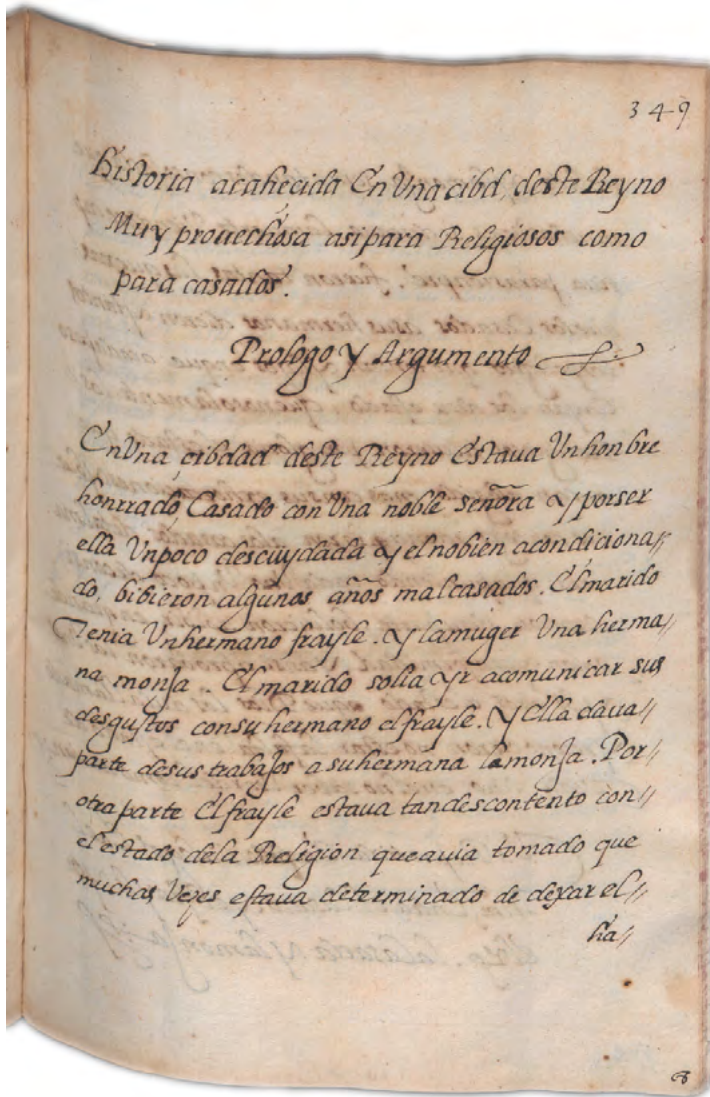 349
Historia acahecida En Una cibd, deste Reyno
Muy prouechosa asi para Religiosos como
para casados.
Prologo y Argumento
En Una çibdad deste Reyno Estava Un honbre
honrrado, Casado con Una noble señora y por ser
ella Un poco descuydada y el no bien acondiciona//
do, bibieron algunos años mal casados. El marido
Tenia Un hermano frayle. y la muger Una herma//
na monja. El marido solia yr a comunicar sus
desgustos con su hermano el frayle. y Ella dava//
parte de sus trabajos a su hermana la monja. Por//
otra parte El frayle estava tan descontento con//
el estado de la Religion que avia tomado que
muchas Vezes estava determinado de dexar el//
ha//